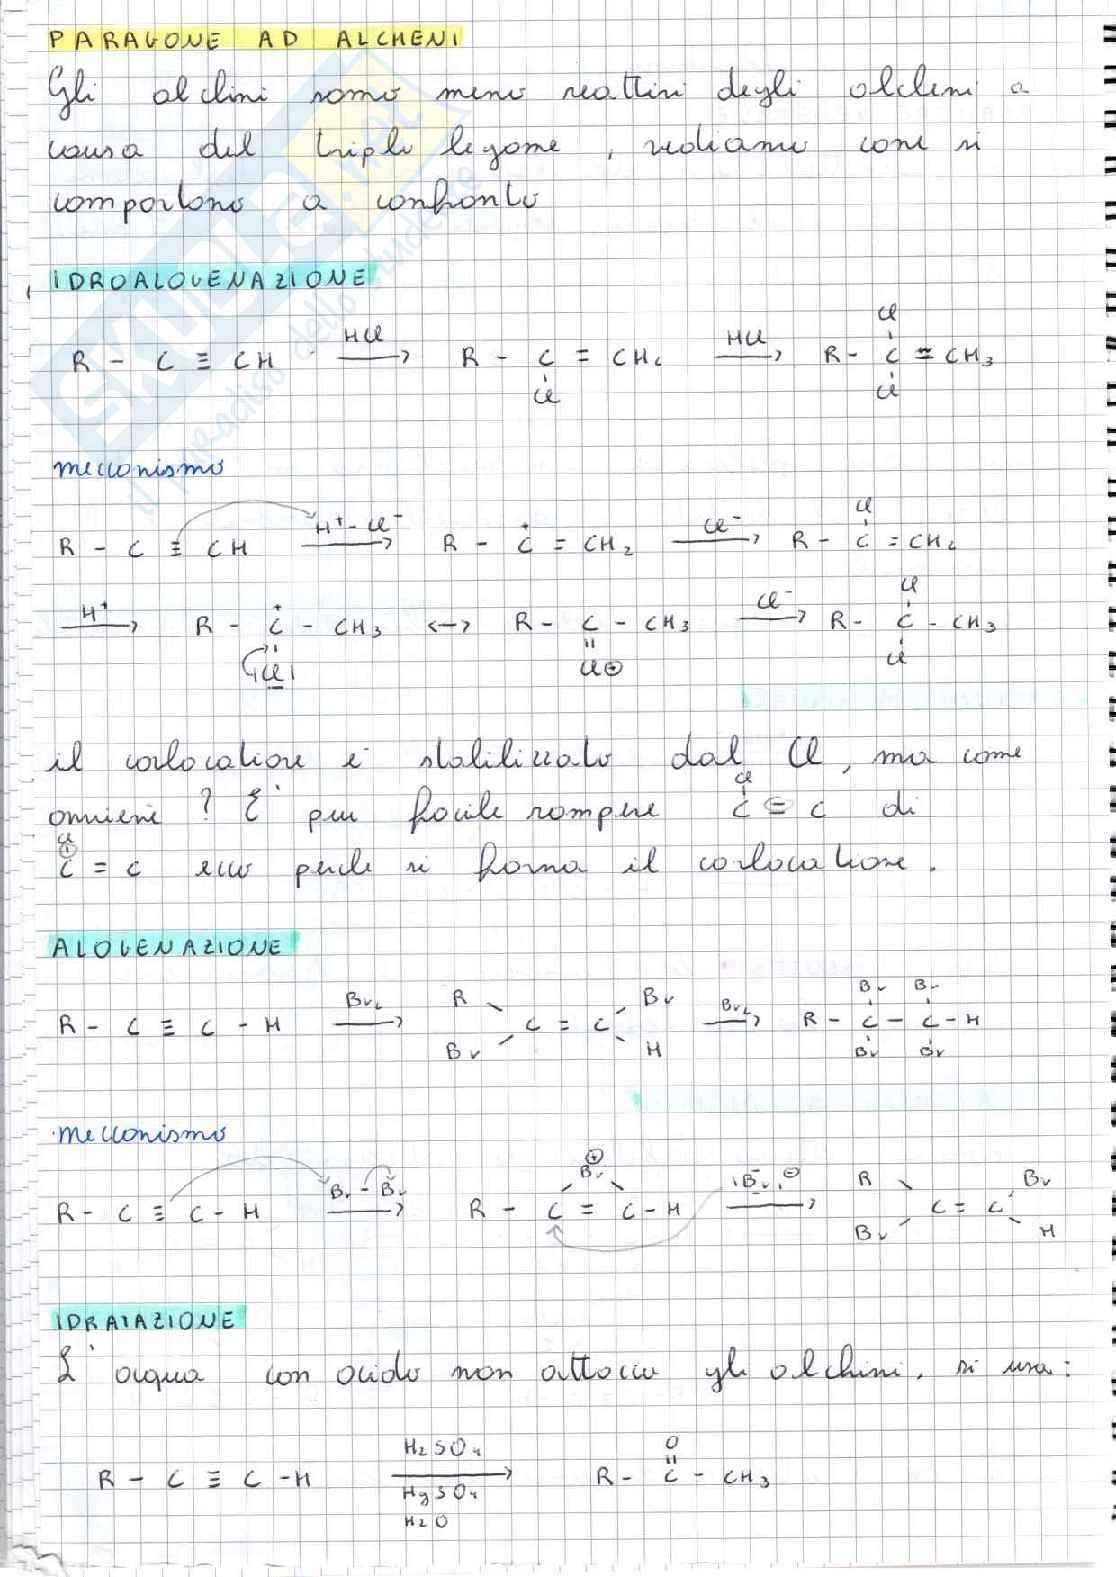 PARAGONE AD ALCHENI
Gli alchini sono meno reattivi degli alcheni a
causa del triplo legame, vediamo come si
comportano a confronto
IDROALOGENAZIONE
R - C ≡ CH HCl → R - C = CH2 HCl → R - C = CH3
Cl Cl Cl
meccanismo
R - C ≡ CH H⁺ - Cl⁻ → R - C⁺ = CH2 Cl⁻ → R - C = CH2
Cl
H⁺ → R - C⁺ - CH3 ↔ R - C - CH3 Cl⁻ → R - C - CH3
|Cl| Cl⊕ Cl Cl
il carbocatione è stabilizzato dal Cl, ma come
avviene? E' più facile rompere C = C di
Cl
C = C ecco perché si forma il carbocatione.
Cl
ALOGENAZIONE
R - C ≡ C - H Br2 → R Br C = C Br H Br2 → R - C - C - H
Br Br Br Br
meccanismo
R - C ≡ C - H Br - Br → R - C = C - H |Br|⊖ → R Br C = C Br H
Br⊕
IDRATAZIONE
L'acqua con acido non attacca gli alchini, si usa:
R - C ≡ C - H H2SO4 → R - C - CH3
HgSO4 O
H2O
SKUOLA.net
il paradiso dello studente